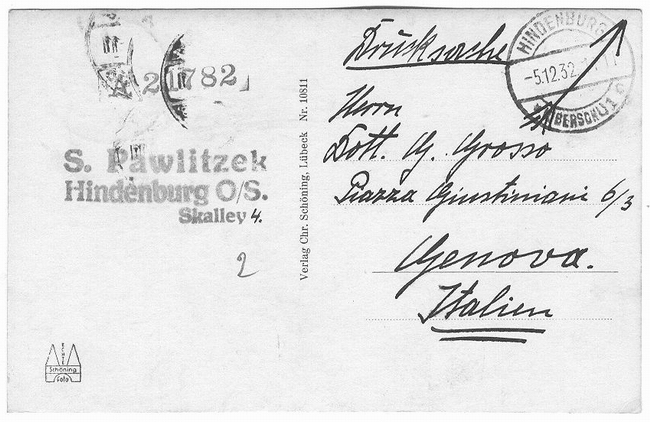 A 21782
S. Pawlitzek
Hindenburg O/S.
Skalley 4.
2
Schöning
Foto
Verlag Chr. Schöning, Lübeck Nr. 10811
HINDENBURG
-5.12.32.
OBERSCHL 1
Drucksache
Herrn
Dott. G. Grosso
Piazza Giustiniani 6/3
Genova.
Italien